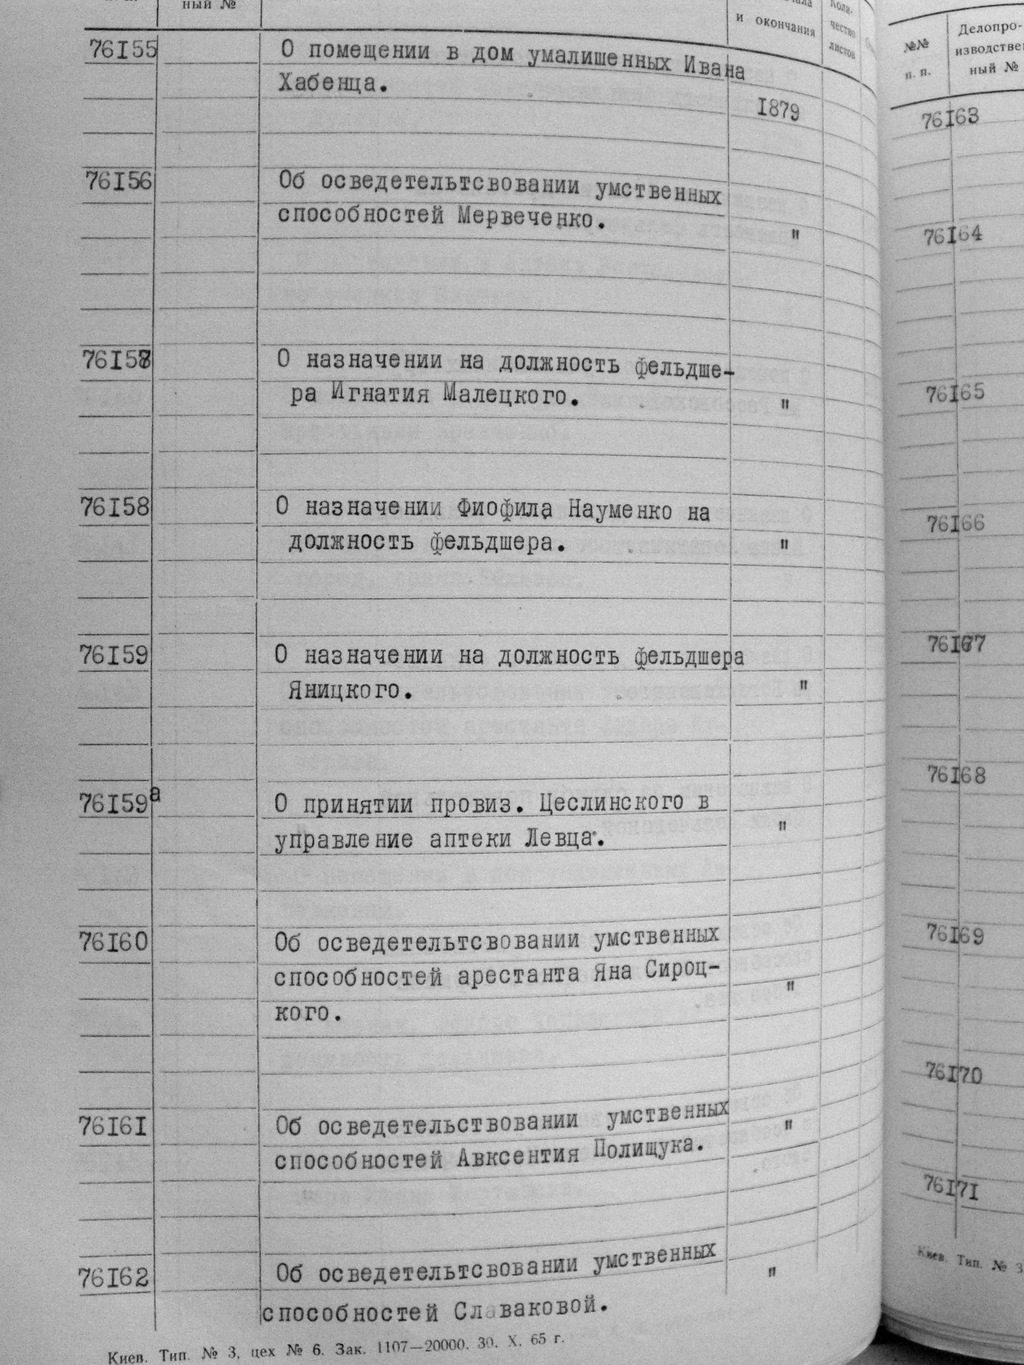 ный №
и окончания
Коли-
чество
листов
76I55 О помещении в дом умалишенных Ивана
Хабенца.
I879
76I56 Об осведетельтсвовании умственных
способностей Мервеченко. "
76I57 О назначении на должность фельдше-
ра Игнатия Малецкого. "
76I58 О назначении Фиофила Науменко на
должность фельдшера. "
76I59 О назначении на должность фельдшера
Яницкого. "
76I59а О принятии провиз. Цеслинского в
управление аптеки Левца. "
76I60 Об осведетельтсвовании умственных
способностей арестанта Яна Сироц-
кого. "
76I6I Об осведетельствовании умственных "
способностей Авксентия Полищука.
76I62 Об осведетельтсвовании умственных "
способностей Славаковой.
Киев. Тип. № 3, цех № 6. Зак. 1107—20000. 30. X. 65 г.
№№
п. п.
Делопро-
изводствен
ный №
76I63
76I64
76I65
76I66
76I67
76I68
76I69
76I70
76I7I
Киев. Тип. № 3